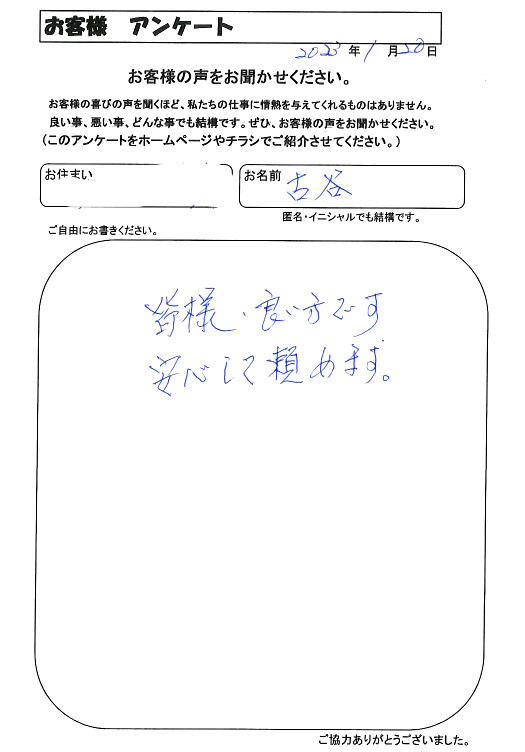 お客様 アンケート
2023年1月20日
お客様の声をお聞かせください。
お客様の喜びの声を聞くほど、私たちの仕事に情熱を与えてくれるものはありません。
良い事、悪い事、どんな事でも結構です。ぜひ、お客様の声をお聞かせください。
(このアンケートをホームページやチラシでご紹介させてください。)
お住まい
お名前 古谷
匿名・イニシャルでも結構です。
ご自由にお書きください。
皆様、良い方です
安心して頼めます。
ご協力ありがとうございました。